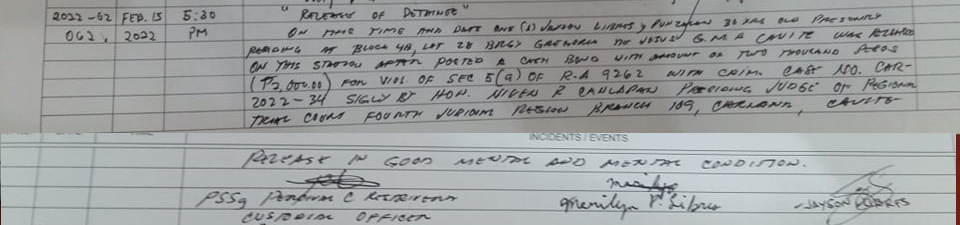 2022-02 FEB. 15 5:30 "RELEASE OF DETAINEE"
062, 2022 PM ON THIS TIME AND DATE ONE (1) JAYSON LIBRES y PUNZALAN 36 YRS OLD PRESENTLY
RESIDING AT BLOCK 4B, LOT 28 BRGY GREGORIA DE JESUS G.M.A CAVITE WAS RELEASED
ON THIS STATION AFTER POSTED A CASH BOND WITH AMOUNT OF TWO THOUSAND PESOS
(₱2,000.00) FOR VIOL OF SEC 5(a) OF R.A 9262 WITH CRIM. CASE NO. CAR-
2022-34 SIGN BY HON. R PRESIDING JUDGE OF REGIONAL
TRIAL COURT FOURTH JUDICIAL REGION BRANCH 109, CARMONA, CAVITE
INCIDENTS / EVENTS
RELEASE IN GOOD MENTAL AND MENTAL CONDITION.
PSSg C Merilyn P. Libres JAYSON LIBRES
CUSTODIAL OFFICER